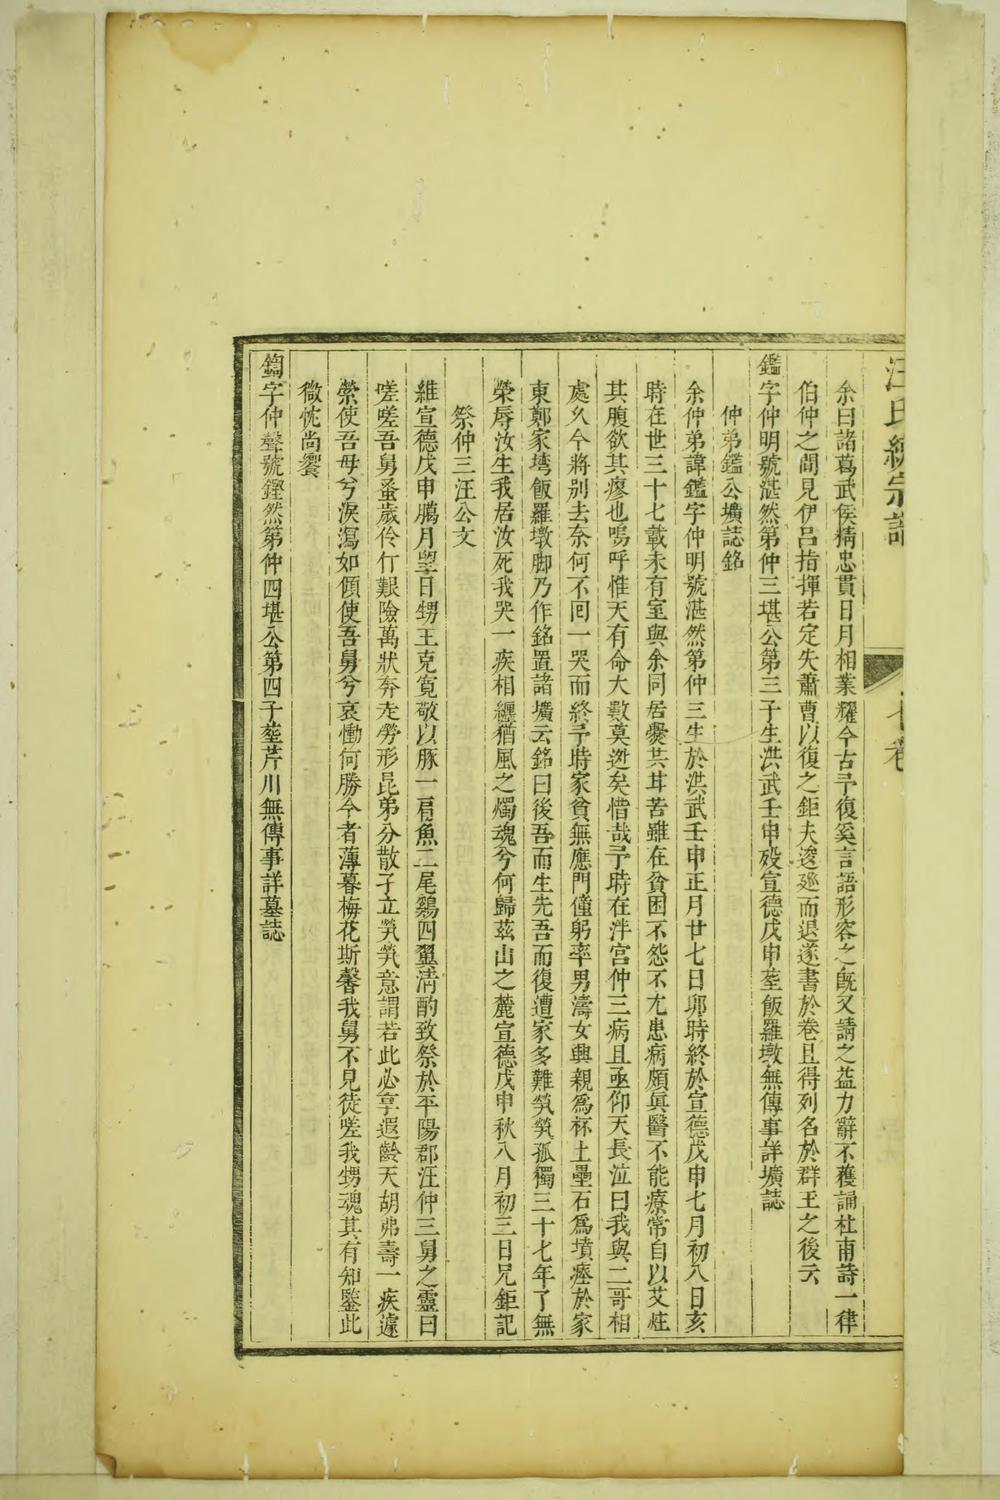 汪氏統宗譜
卷
余曰諸葛武侯精忠貫日月相業耀今古予復奚言語形容之旣又請之益力辭不獲誦杜甫詩一律
伯仲之間見伊吕指揮若定失蕭曹以復之鉅夫逡廵而退遂書於卷且得列名於群玉之後云
鑑字仲明號湛然第仲三堪公第三子生洪武壬申殁宣德戊申塟飯羅墩無傳事詳壙誌
仲弟鑑公壙誌銘
余仲弟諱鑑字仲明號湛然第仲三生於洪武壬申正月廿七日夘時終於宣德戊申七月初八日亥
時在世三十七載未有室與余同居㝯其甘苦雖在貧困不怨不尤患病頗眞醫不能療常自以艾炷
其腹欲其瘳也嗚呼惟天有命大數莫迯矣惜哉予時在泮宮仲三病且亟仰天長泣曰我與二哥相
處久今將别去奈何不囘一哭而終予時家貧無應門僮躬率男濤女興親爲抔土壘石爲墳瘞於家
東鄭家塆飯羅墩脚乃作銘置諸壙云銘曰後吾而生先吾而復遭家多難煢煢孤獨三十七年了無
榮辱汝生我居汝死我哭一疾相纒猶風之燭魂兮何歸茲山之麓宣德戊申秋八月初三日兄鉅記
祭仲三汪公文
維宣德戊申臈月朢日甥王克寛敬以豚一肩魚二尾鷄四翼清酌致祭於平陽郡汪仲三舅之靈曰
嗟嗟吾舅蚤歲伶仃艱險萬狀奔走勞形昆弟分散孑立煢煢意謂若此必享遐齡天胡弗壽一疾遽
縈使吾母兮淚瀉如傾使吾舅兮哀慟何勝今者薄暮梅花斯馨我舅不見徒嗟我甥魂其有知鑒此
微忱尚饗
鍧字仲聲號鏗然第仲四堪公第四子塟芹川無傳事詳墓誌